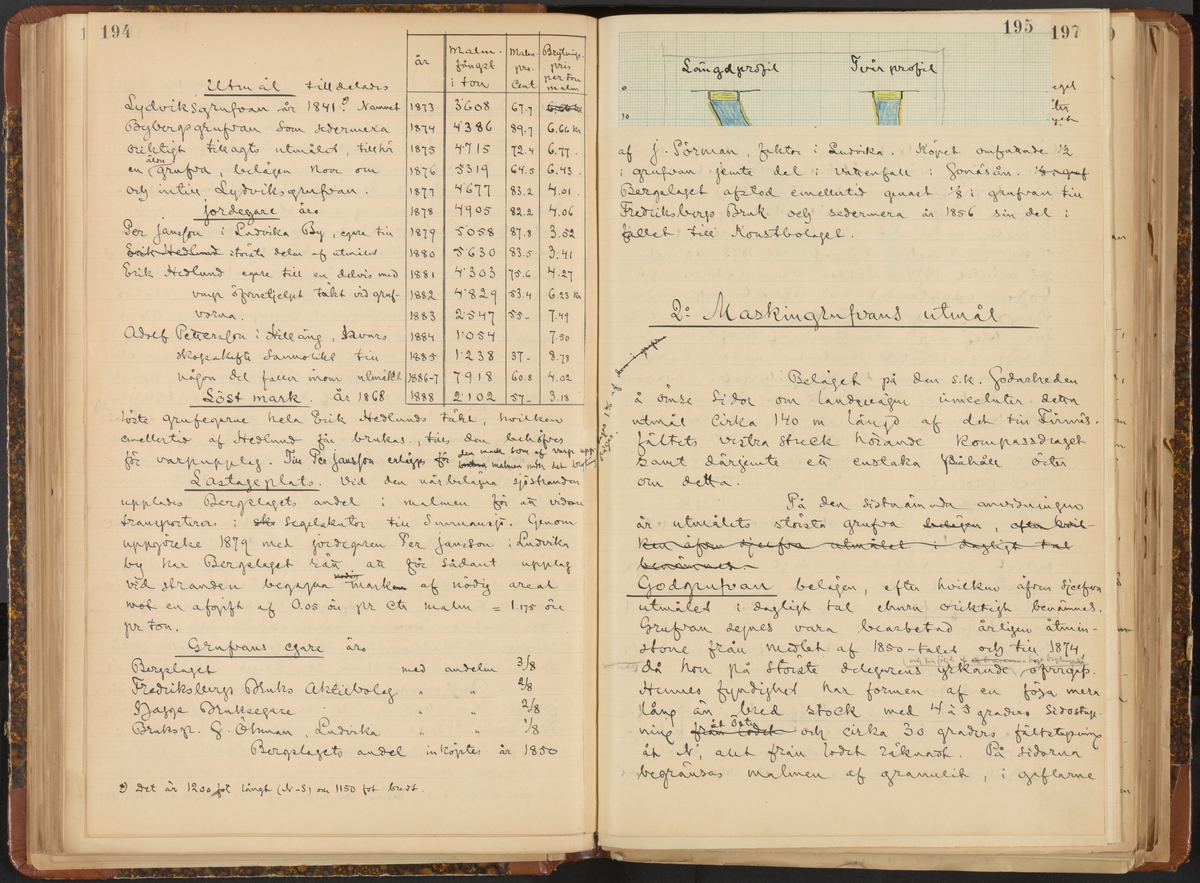 194
Utmål tilldelades
Lydviksgrufvan år 1841. Namnet
Bybergsgrufvan som sedermera
oriktigt tillagts utmålet, tillhör
en äldre grufva, belägen norr om
och intill Lydviksgrufvan.
Jordegare äro
Per Jansson i Ludvika By, egare till
Erik Hedlund största delen af utmålet
Erik Hedlund egare till en delvis med
varp öfverhjelpt täkt vid gruf-
vorna.
Adolf Pettersson i Hilläng, hvars
skogsskifte sannolikt till
någon del faller inom utmålet
år Malm-fångst i ton Malm pro-cent Brytnings-pris per ton malm
1873 3608 67.7
1874 4386 89.7 6.66 kr
1875 4715 72.4 6.77.
1876 5319 64.5 6.43.
1877 4677 83.2 4.01.
1878 4905 82.2 4.06
1879 5058 87.8 3.52
1880 5630 83.5 3.41
1881 4303 75.6 4.27
1882 4829 53.4 6.23 kr
1883 2547 55- 7.49
1884 1054 7.50
1885 1238 37- 8.73
1886-7 7918 60.8 4.02
1888 2102 57- 3.18
Löst mark. år 1868
löste grufegarne hela Erik Hedlunds täkt, hvilken
emellertid af Hedlund får brukas, tills den behöfves
för varpupplag. Till Per Jansson erlägges för den mark som af varp
Lastageplats. Vid den närbelägna sjöstranden
upplades Bergslagets andel i malmen för att vidare
transporteras i segelskutor till Smmansjö. Genom
uppgörelse 1879 med jordegaren Per Jansson i Ludvika
by har Bergslaget rätt att för sådant upplag
vid stranden begagna marken af nödig areal
mot en afgift af 0.05 öre pr ctr malm = 1.175 öre
pr ton.
Grufvans egare äro
Bergslaget med andelen 3/8
Fredriksbergs Bruks Aktiebolag " " 2/8
Bruksegare " " 2/8
Bruksp. G. Öhman, Ludvika " " 1/8
Bergslagets andel inköptes år 1850
Det är 1200 fot långt (N-S) och 1150 fot bredt.
195
197
Längdprofil Tvärprofil
0
10
af J. Pörman, faktor i Ludvika. Köpet omfattade 1/2
i grufvan jemte del i vattenfall i Gonäsån.
Bergslaget afstod emellertid genast 1/8 i grufvan till
Fredriksbergs Bruk och sedermera år 1856 sin del i
fallet till Konstbolaget.
2: Maskingrufvans utmål
Beläget på den s.k. Godarheden
å ömse sidor om landsvägen innesluter detta
utmål cirka 140 m längd af det till Finnäs-
fältets vestra stuck hörande kompassdraget
samt därjemte ett enstaka påhåll öster
om detta.
På den sistnämnda anvisningen
är utmålets största grufva belägen, efter hvil-
ken äfven sjelfva utmålet i dagligt tal
benämnes.
Godgrufvan belägen, efter hvilken äfven sjelfva
utmålet i dagligt tal ehuru oriktigt benämnes.
Grufvan synes vara bearbetad årligen åtmin-
stone från midten af 1850-talet och till 1874,
då hon på största delegarens yrkande öfvergafs.
Hennes fyndighet har formen af en föga mera
lång än bred stock med 4 à 5 graders sidostup-
ning från lodet åt öster och cirka 30 graders fältstupning
åt N, allt från lodet räknadt. På sidorna
begränsas malmen af granulit, i gaflarne